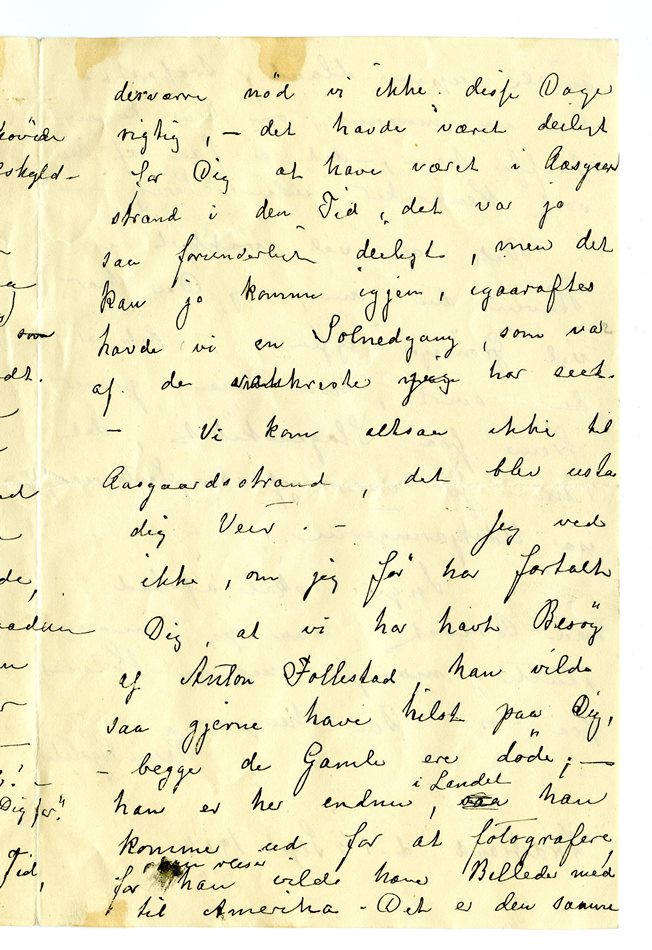 desværre nød vi ikke disse Dage
rigtig, — det havde været deiligt
for Dig at have været i Aasgaard
strand i den Tid, det var jo
saa forunderligt deiligt, men det
kan jo komme igjen, igaaraftes
havde vi en Solnedgang, som var
af de vakkreste jeg har seet.
— Vi kom altsaa ikke til
Aasgaardsstrand, det blev usta
dig Veir. — Jeg ved
ikke, om jeg før har fortalt
Dig, at vi har havt Besøg
af Anton Follestad, han vilde
saa gjerne have hilst paa Dig,
— begge de Gamle ere døde; —
han er her endnu i Landet, han
komme ud for at fotografere,
før han reiser
han vilde have Billeder med
til Amerika — Det er den samme
skyld-
som
dt.
de,
Dig for."
Tid,